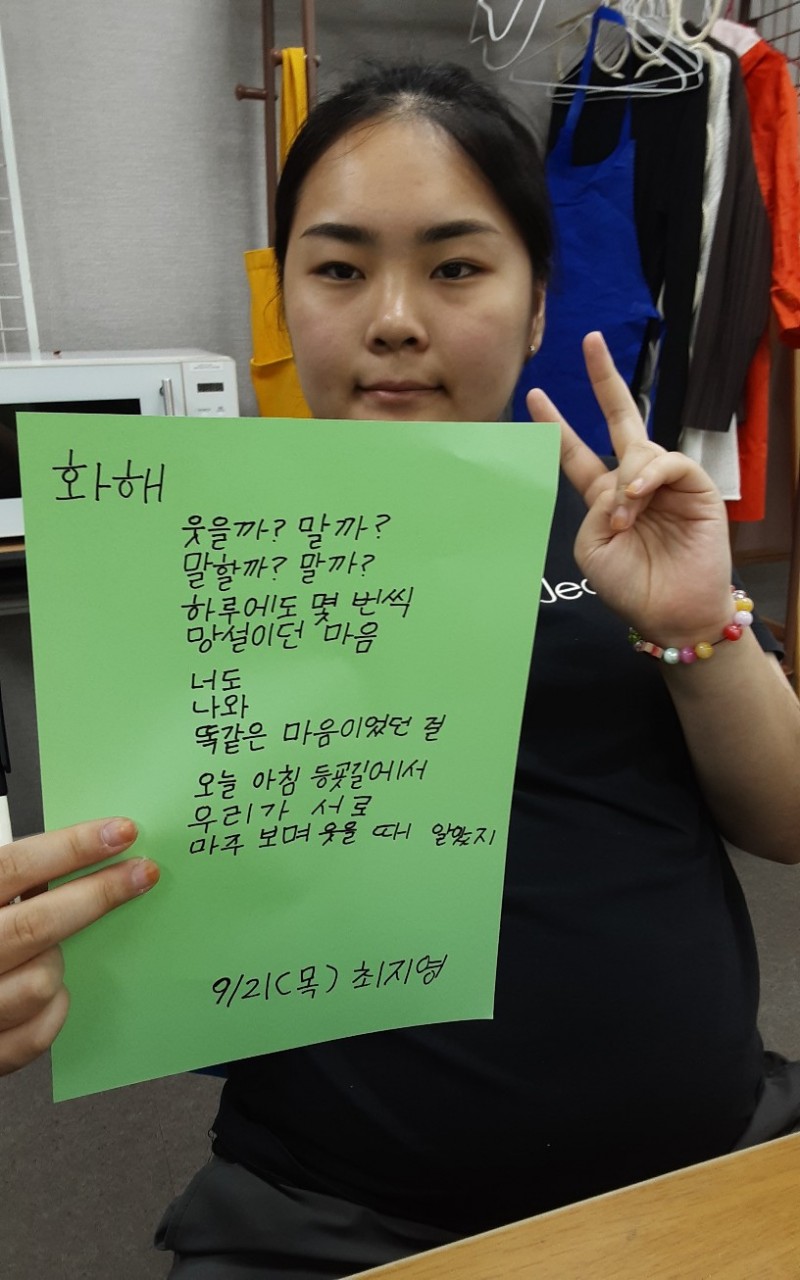 화해
웃을까? 말까?
말할까? 말까?
하루에도 몇 번씩
망설이던 마음
너도
나와
똑같은 마음이었던 걸
오늘 아침 등굣길에서
우리가 서로
마주 보며 웃을 때 알았지
9/21(목) 최지영